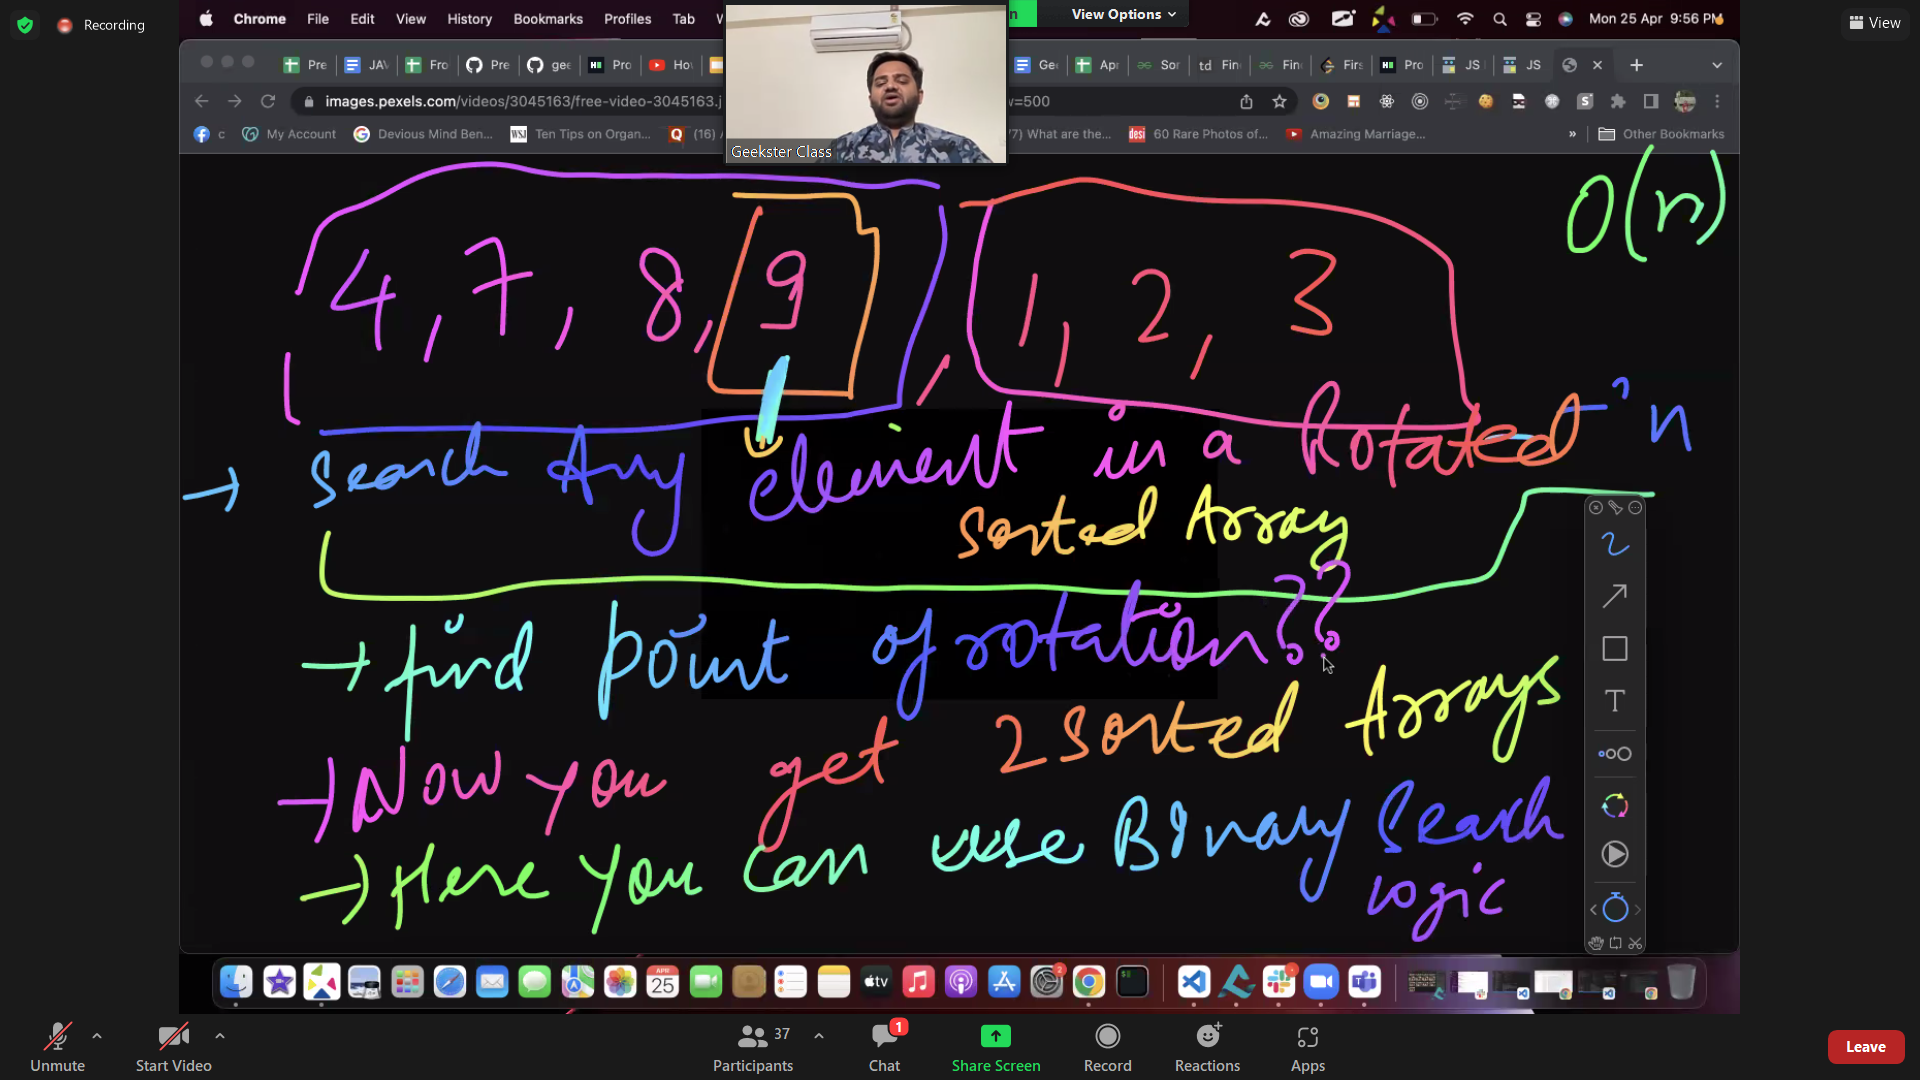 Recording
Chrome File Edit View History Bookmarks Profiles Tab
View Options
Mon 25 Apr 9:56 PM
View
Pre JAV Fro Pre gee Pro Hov
Gee Apr Sor Fin Fin Firs Pro JS JS
images.pexels.com/videos/3045163/free-video-3045163.j
w=500
c My Account Devious Mind Ben... Ten Tips on Organ... (16)
/7) What are the... 60 Rare Photos of... Amazing Marriage...
» Other Bookmarks
Geekster Class
O(n)
4, 7, 8, 9, 1, 2, 3
n
→ Search Any element in a Rotated
Sorted Array
→ find point of rotation??
→ Now you get 2 Sorted Arrays
→ Here you can use Binary Search
logic
T
APR
25
tv
2
Unmute
Start Video
37
Participants
1
Chat
Share Screen
Record
Reactions
Apps
Leave